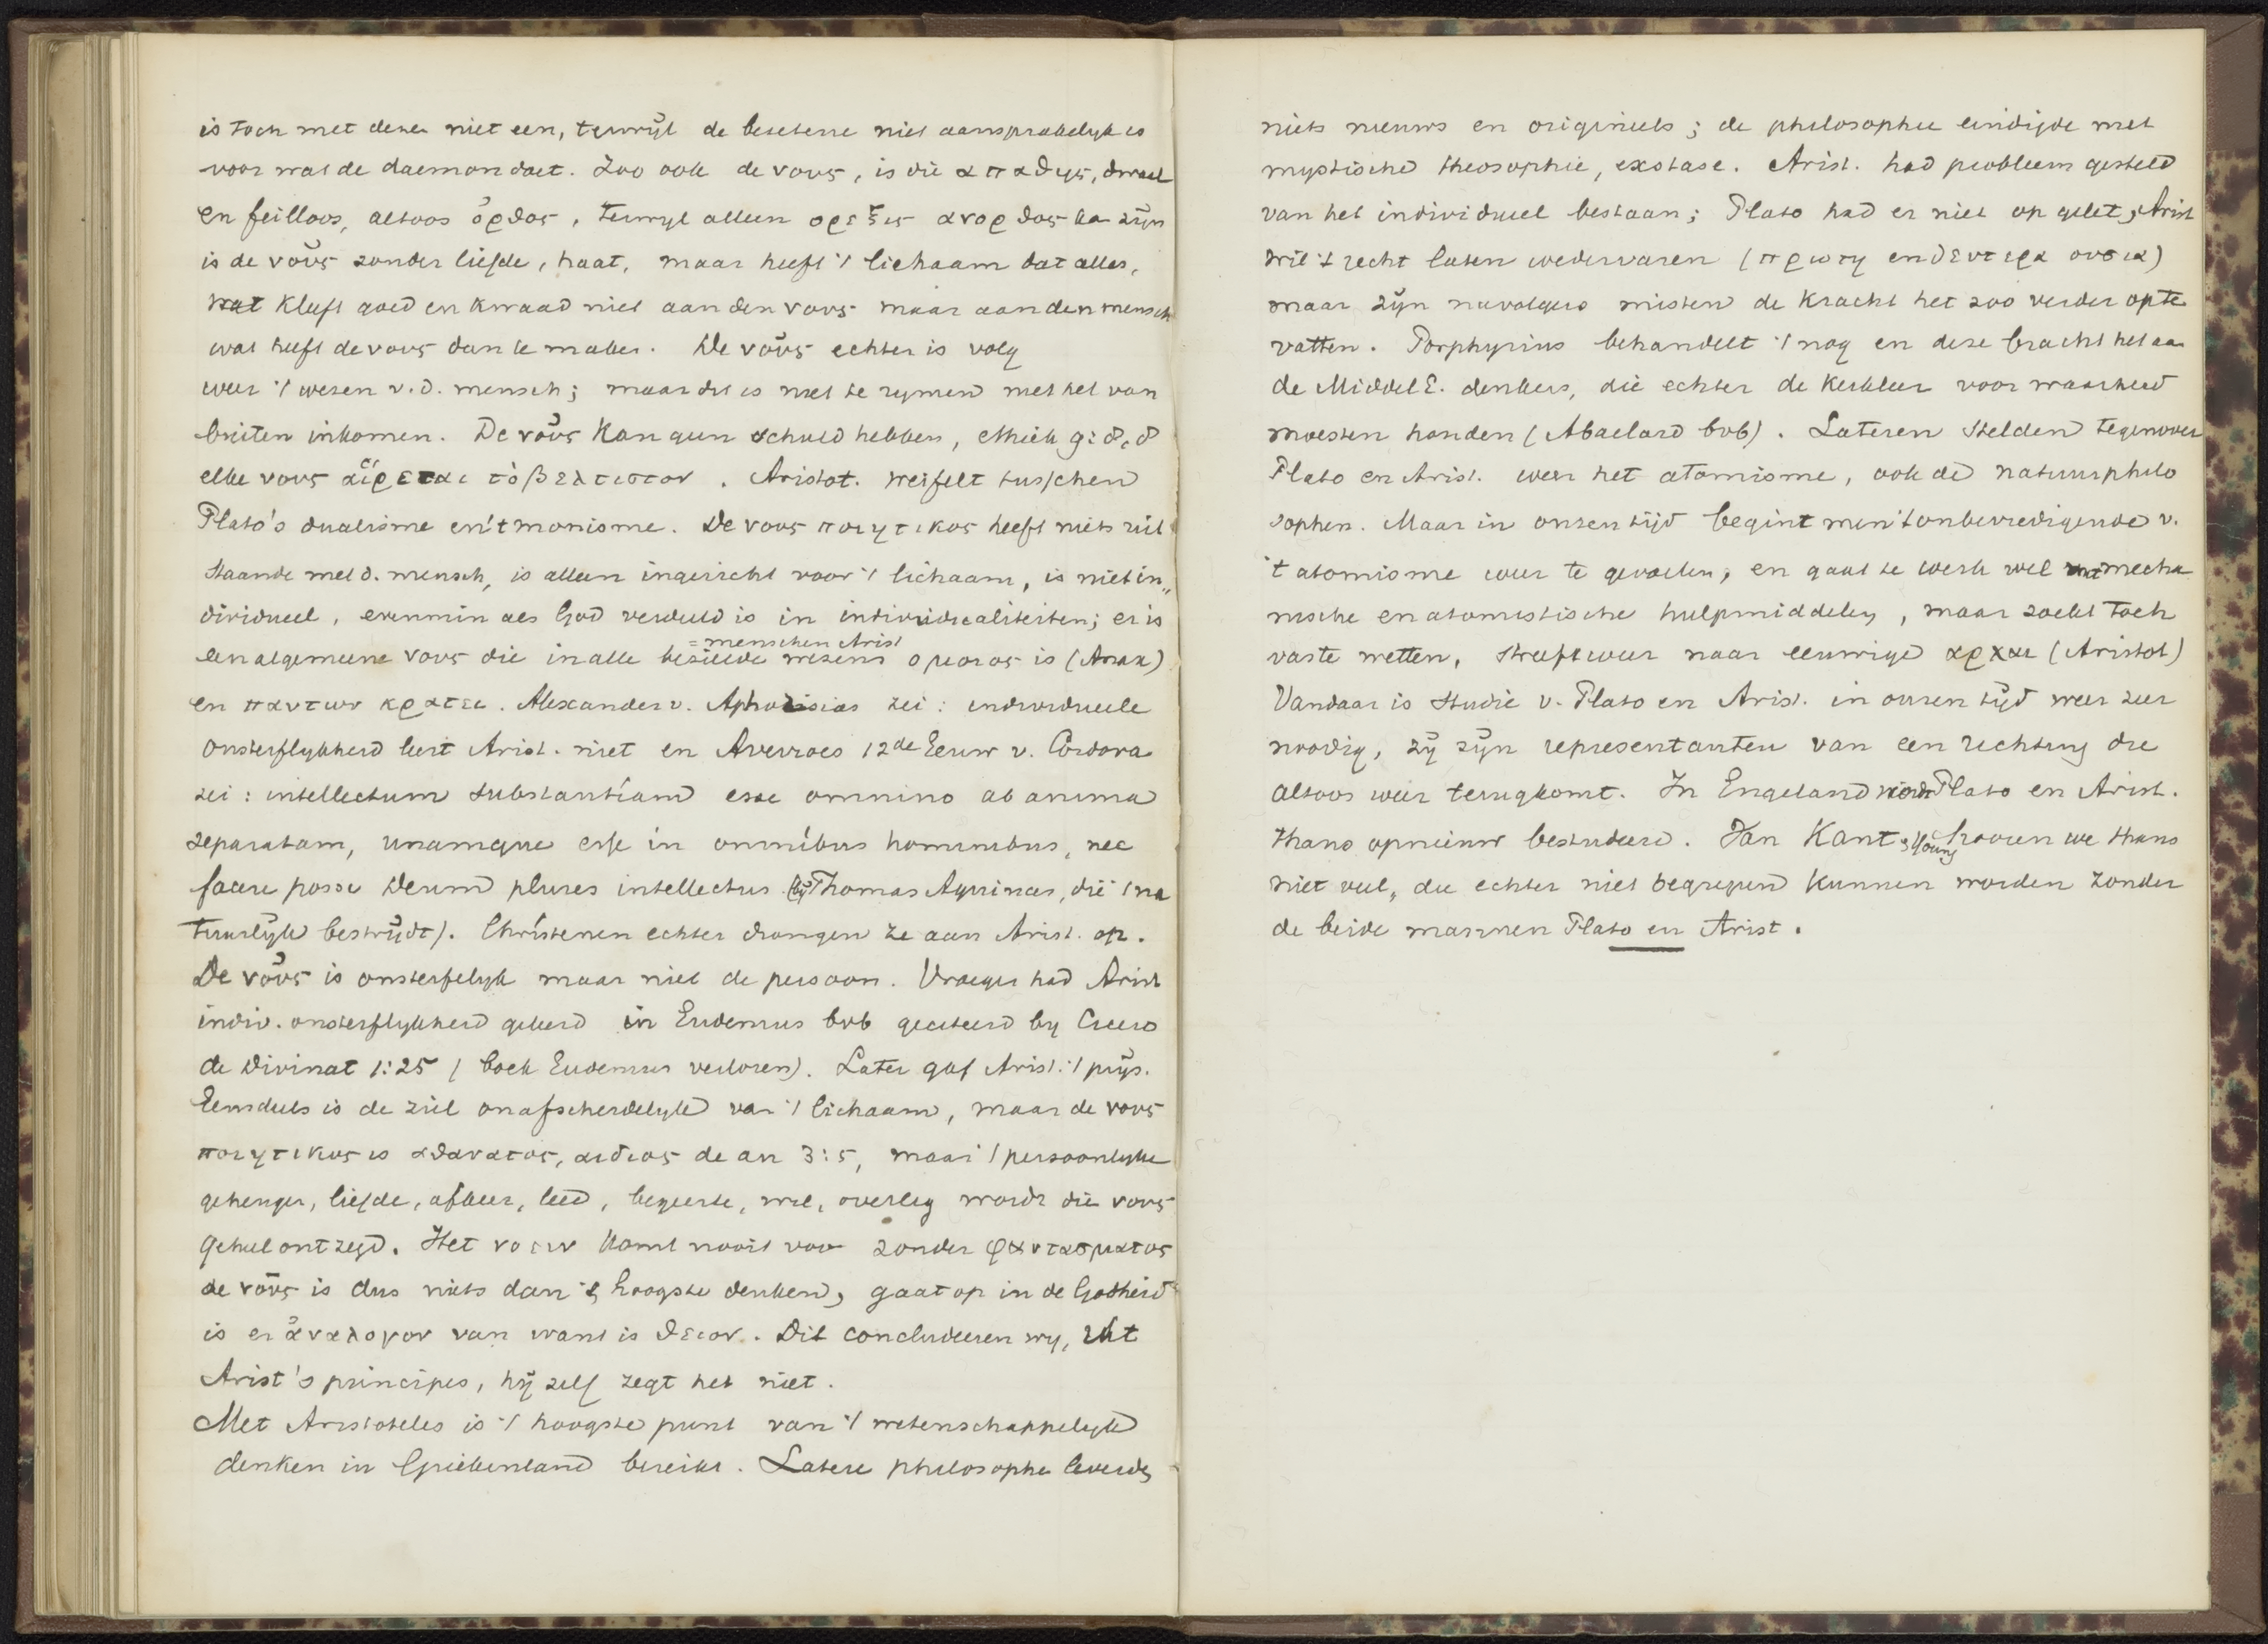 is toch met dezen niet een, terwijl de bezetene niet aansprakelyk is
voor wat de daemon doet. Zoo ook de νους, is die απαθης, dwaal
en feilloos, altoos ὀρθος, terwyl alleen ορεξις ανορθος kan zijn
is de νοῦς zonder liefde, haat, maar heeft 't lichaam dat alles,
wat kleeft goed en kwaad niet aan den νους maar aan den mensch
wat heeft de νους dan te maken. De νοῦς echter is volg
weer 't wesen v.d. mensch; maar dit is niet te rymen met het van
buiten inkomen. De νοῦς kan geen schuld hebben, ethiek
elke νους αἱρεται τὸ βελτιστον. Aristot. weifelt tusschen
Plato's dualisme en 't monisme. De νους ποιητικος heeft niets uit
staande met d. mensch, is alleen ingericht voor 't lichaam, is niet in„
dividueel, evenmin als God verdeeld is in individualiteiten; er is
= menschen Arist
een algemeene νους die in alle bezielde wezens ομοιος is (Anax)
en παντων κρατει. Alexander v. Aphrodisias zei: individueele
onsterflykheid leert Arist. niet en Averroes 12de Eeuw v. Cordova
zei: intellectum substantiam esse omnino ab anima
separatam, unamque esse in omnibus hominibus, nec
facere posse Deum plures intellectus (by Thomas Aquinas, die 't na
tuurlyk bestrijdt). Christenen echter drongen ze aan Arist. op.
De νοῦς is onsterfelyk maar niet de persoon. Vroeger had Arist
indiv. onsterflykheid geleerd in Eudemus bvb geciteerd by Cicero
de Divinat 1:25 (boek Eudemus verloren). Later gaf Arist. 't prijs.
Eensdeels is de ziel onafscheidelyk van 't lichaam, maar de νους
ποιητικος is αθανατος, αιδιος de an 3:5, maar 't persoonlyke
geheugen, liefde, afkeer, leed, begeerte, wil, overleg wordt die νους
geheel ontzegd. Het νοειν komt nooit voor zonder φαντασματος
de νοῦς is dus niets dan 't hoogste denken, gaat op in de Godheid
is er ἀναλογον van want is θειον. Dit concludeeren wy, uit
Arist's principes, hij zelf zegt het niet.
Met Aristoteles is 't hoogste punt van 't wetenschappelyk
denken in Griekenland bereikt. Latere philosophen leverden
niets nieuws en origineels; de philosophie eindigde met
mystische theosophie, exstase. Arist. had probleem gesteld
van het individueel bestaan; Plato had er niet op gelet; Arist
wil 't recht laten wedervaren (πρωτη en δευτερα ουσια)
maar zijn navolgers misten de kracht het zoo verder op te
vatten. Porphyrius behandelt 't nog en deze bracht het aan
de Middel E. denkers, die echter de kerkleer voor waarheid
moesten houden (Abaelard bvb). Lateren stelden tegenover
Plato en Arist. weer het atomisme, ook de natuurphilo
sophen. Maar in onzen tijd begint men 't onbevredigende v.
't atomisme weer te gevoelen, en gaat te werk wel met mecha
nische en atomistische hulpmiddelen, maar zoekt toch
vaste wetten, streeft weer naar eeuwige αρχαι (Aristot)
Vandaar is studie v. Plato en Arist. in onzen tijd weer zeer
noodig, zij zijn representanten van een richting die
altoos weer terugkomt. In Engeland wordt Plato en Arist.
thans opnieuw bestudeerd. Van Kant, hooren we thans
niet veel, die echter niet begrepen kunnen worden zonder
de beide mannen Plato en Arist.